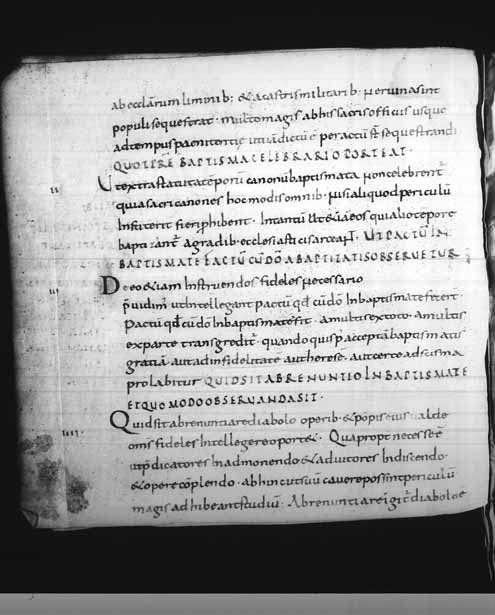 ab ecclarum liminib: & a castris militarib: p eruina sint
populi sequestrat. multo magis ab his sacris officiis usque
ad tempus paenitentię uti iā dictū ē peractū st sequestrandi.
QUO TEPRE BAPTISMA CELEBRARI OPORTEAT.
Ut extra statuta tēporū canonū baptismata non celebrent
quia sacri canones hoc modis omnib. nisi aliquod periculū
Institerit fieri phibent.
bapt agradib. ecclesiasticis arceant. UT PACTŪ IN
BAPTISMATE FACTŪ CŪ DŌ A BAPTIZATIS OBSERVETUR
De eo etiam Instruendos fideles necessario
pvidim ut intellegant pactū qd cū dō In baptismate fecerint.
Pactū qd cū dō In baptismate fit. a multis ex toto. a multis
ex parte transgredit. quando quisq p acceptā baptismatis
gratiā. aut ad infidelitatē aut herese. aut certe ad scisma
prolabitur QUID SIT ABRENUNTIO IN BAPTISMATE
ET QUOMODO OBSERVANDA SIT.
Quid sit abrenuntiare diabolo operib. & pōpis eius ualde
oms fideles Intellegere oport&. Quapropt necesse ē
ut pdicatores In admonendo & auditores In discendo.
& opere cōplendo. ab hinc utsuū cavere possint periculū
magis adhibeant studiū: Abrenuntiare igit diabolo e